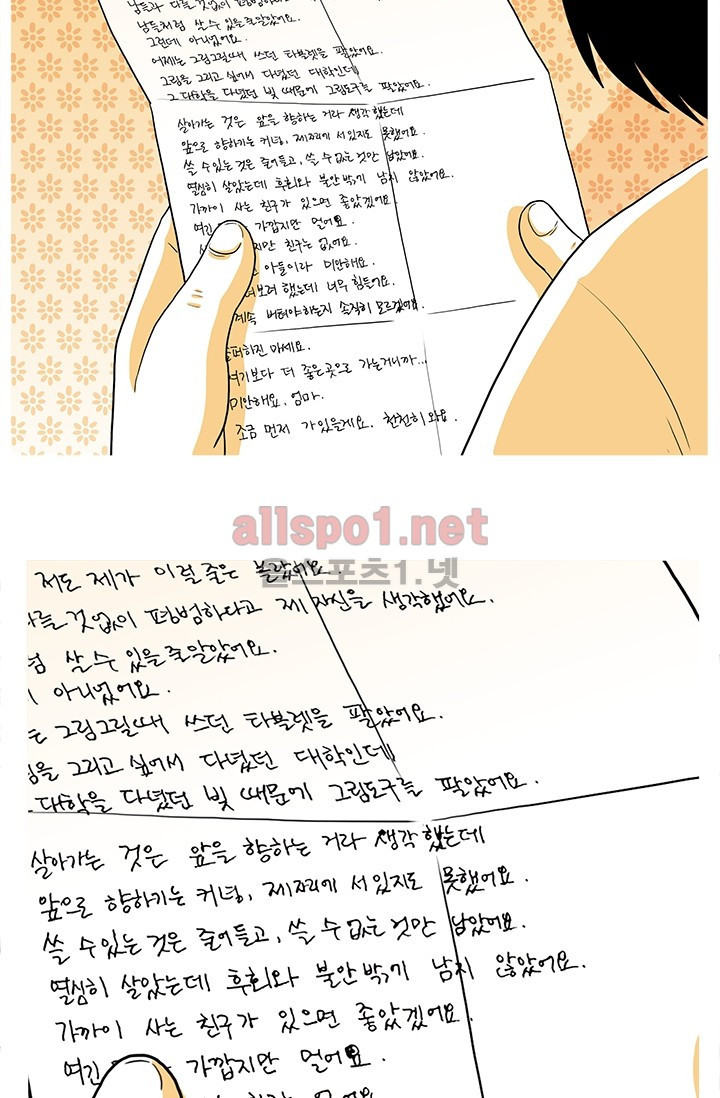 남들과 다를것없이 평범하
남들처럼 살 수 있을줄알았어요.
그런데 아니었어요.
어제는 그림그릴때 쓰던 타블렛을 팔았어요.
그림을 그리고 싶어서 다녔던 대학인데
그 대학을 다녔던 빚 때문에 그림도구를 팔았어요.
살아가는 것은 앞을 향하는 거라 생각했는데
앞으로 향하기는 커녕, 제자리에 서있지도 못했어요.
쓸 수있는 것은 줄어들고, 쓸 수 없는 것만 남았어요.
열심히 살았는데 후회와 불안밖에 남지 않았어요.
가까이 사는 친구가 있으면 좋았겠어요.
여긴 가깝지만 멀어요.
지만 친구는 없어요.
아들이라 미안해요.
텨보려 했는데 너무 힘들어요.
계속 버텨야하는지 솔직히 모르겠어요.
슬퍼하진 마세요.
여기보다 더 좋은곳으로 가는거니까...
미안해요, 엄마.
조금 먼저 가있을게요. 천천히와요.
allspo1.net
올스포츠1.넷
저도 제가 이럴줄은 몰랐어요.
다를것없이 평범하다고 제 자신을 생각했어요.
럼 살수 있을줄알았어요.
아니었어요.
는 그림그릴때 쓰던 타블렛을 팔았어요.
림을 그리고 싶어서 다녔던 대학인데
대학을 다녔던 빚 때문에 그림도구를 팔았어요.
살아가는 것은 앞을 향하는 거라 생각했는데
앞으로 향하기는 커녕, 제자리에 서있지도 못했어요.
쓸 수있는 것은 줄어들고, 쓸 수 없는 것만 남았어요.
열심히 살았는데 후회와 불안밖에 남지 않았어요.
가까이 사는 친구가 있으면 좋았겠어요.
여긴 가깝지만 멀어요.